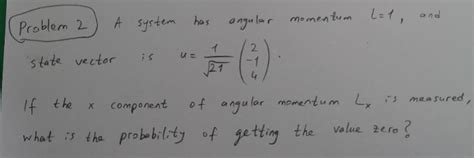 Problem 2 A system has angular momentum L=1, and
state vector is u = 1/√21 (2 -1 4).
If the x component of angular momentum Lx is measured,
what is the probability of getting the value zero?